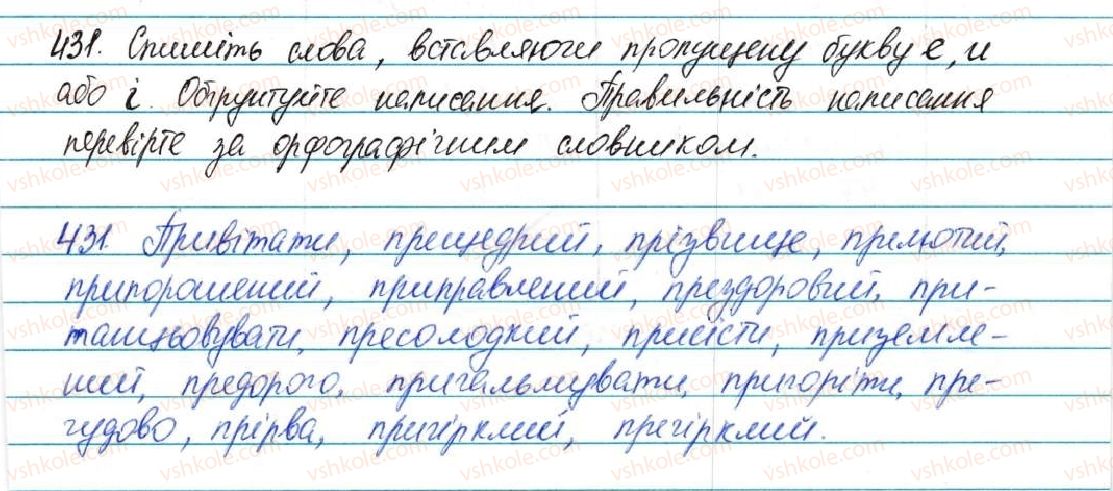 431. Спишіть слова, вставляючи пропущену букву е, и
або і. Обґрунтуйте написання. Правильність написання
перевірте за орфографічним словником.
431. Привітати, прещедрий, прізвище, прелютий,
припорошений, приправлений, прездоровий, при-
танцьовувати, пресолодкий, присісти, приземле-
ний, предорого, пригальмувати, пригоріти, пре-
чудово, прірва, пригірклий, прегірклий.